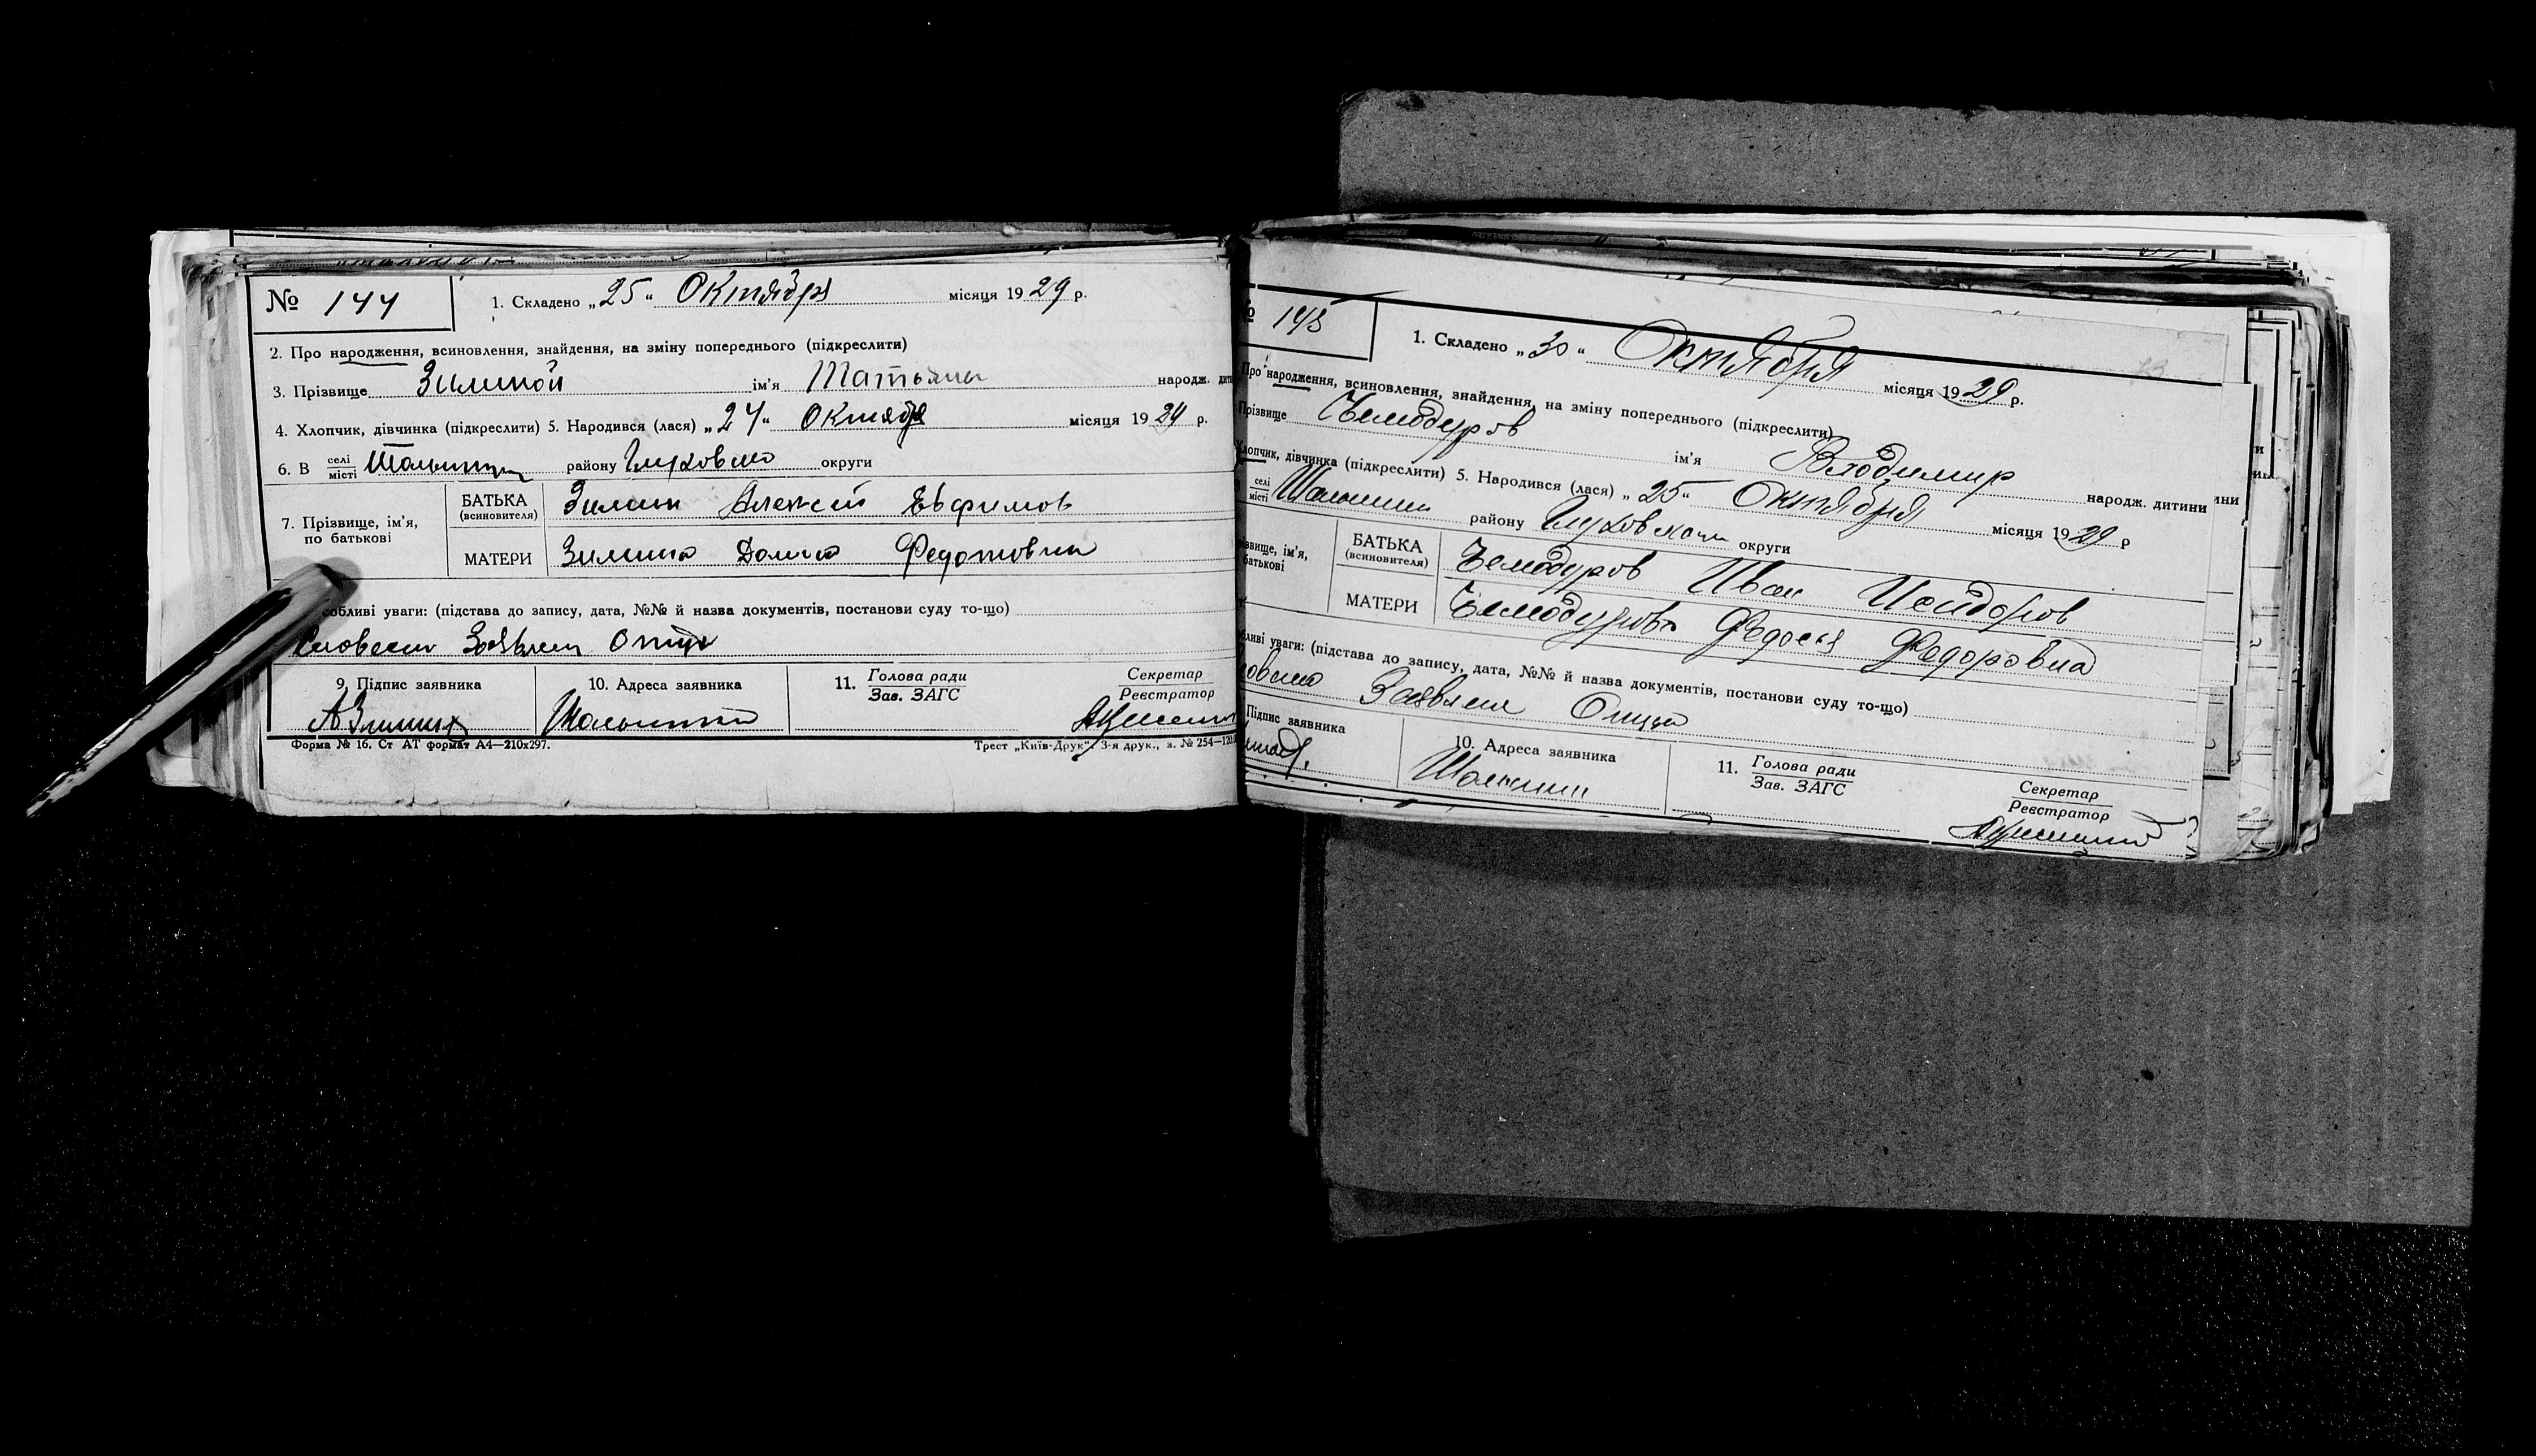 № 144
1. Складено „25“ Октября місяця 1929 р.
2. Про народження, всиновлення, знайдення, на зміну попереднього (підкреслити)
3. Прізвище Зиминой ім'я Татьяны народж. дит
4. Хлопчик, дівчинка (підкреслити) 5. Народився (лася) „24“ Октября місяця 1929 р.
6. В селі місті району округи
7. Прізвище, ім'я, по батькові
БАТЬКА (всиновителя) Зимин Алексей Евфимов
МАТЕРИ Зимина Федотовна
собливі уваги: (підстава до запису, дата, №№ й назва документів, постанови суду то-що)
9. Підпис заявника
10. Адреса заявника
11. Голова ради Зав. ЗАГС
Секретар Реєстратор
Форма № 16. Ст АТ формат А4—210х297.
Трест „Київ-Друк“, 3-я друк., з. № 254—120.
№ 145
1. Складено „30“ Октября місяця 1929 р.
Про народження, всиновлення, знайдення, на зміну попереднього (підкреслити)
Прізвище Чемодуров ім'я Владимир народж. дитини
Хлопчик, дівчинка (підкреслити) 5. Народився (лася) „25“ Октября місяця 1929 р
селі місті району округи
різвище, ім'я, батькові
БАТЬКА (всиновителя) Чемодуров Иван Исидоров
МАТЕРИ Чемодурова Федосья Федоровна
бливі уваги: (підстава до запису, дата, №№ й назва документів, постанови суду то-що)
Підпис заявника
10. Адреса заявника
11. Голова ради Зав. ЗАГС
Секретар Реєстратор